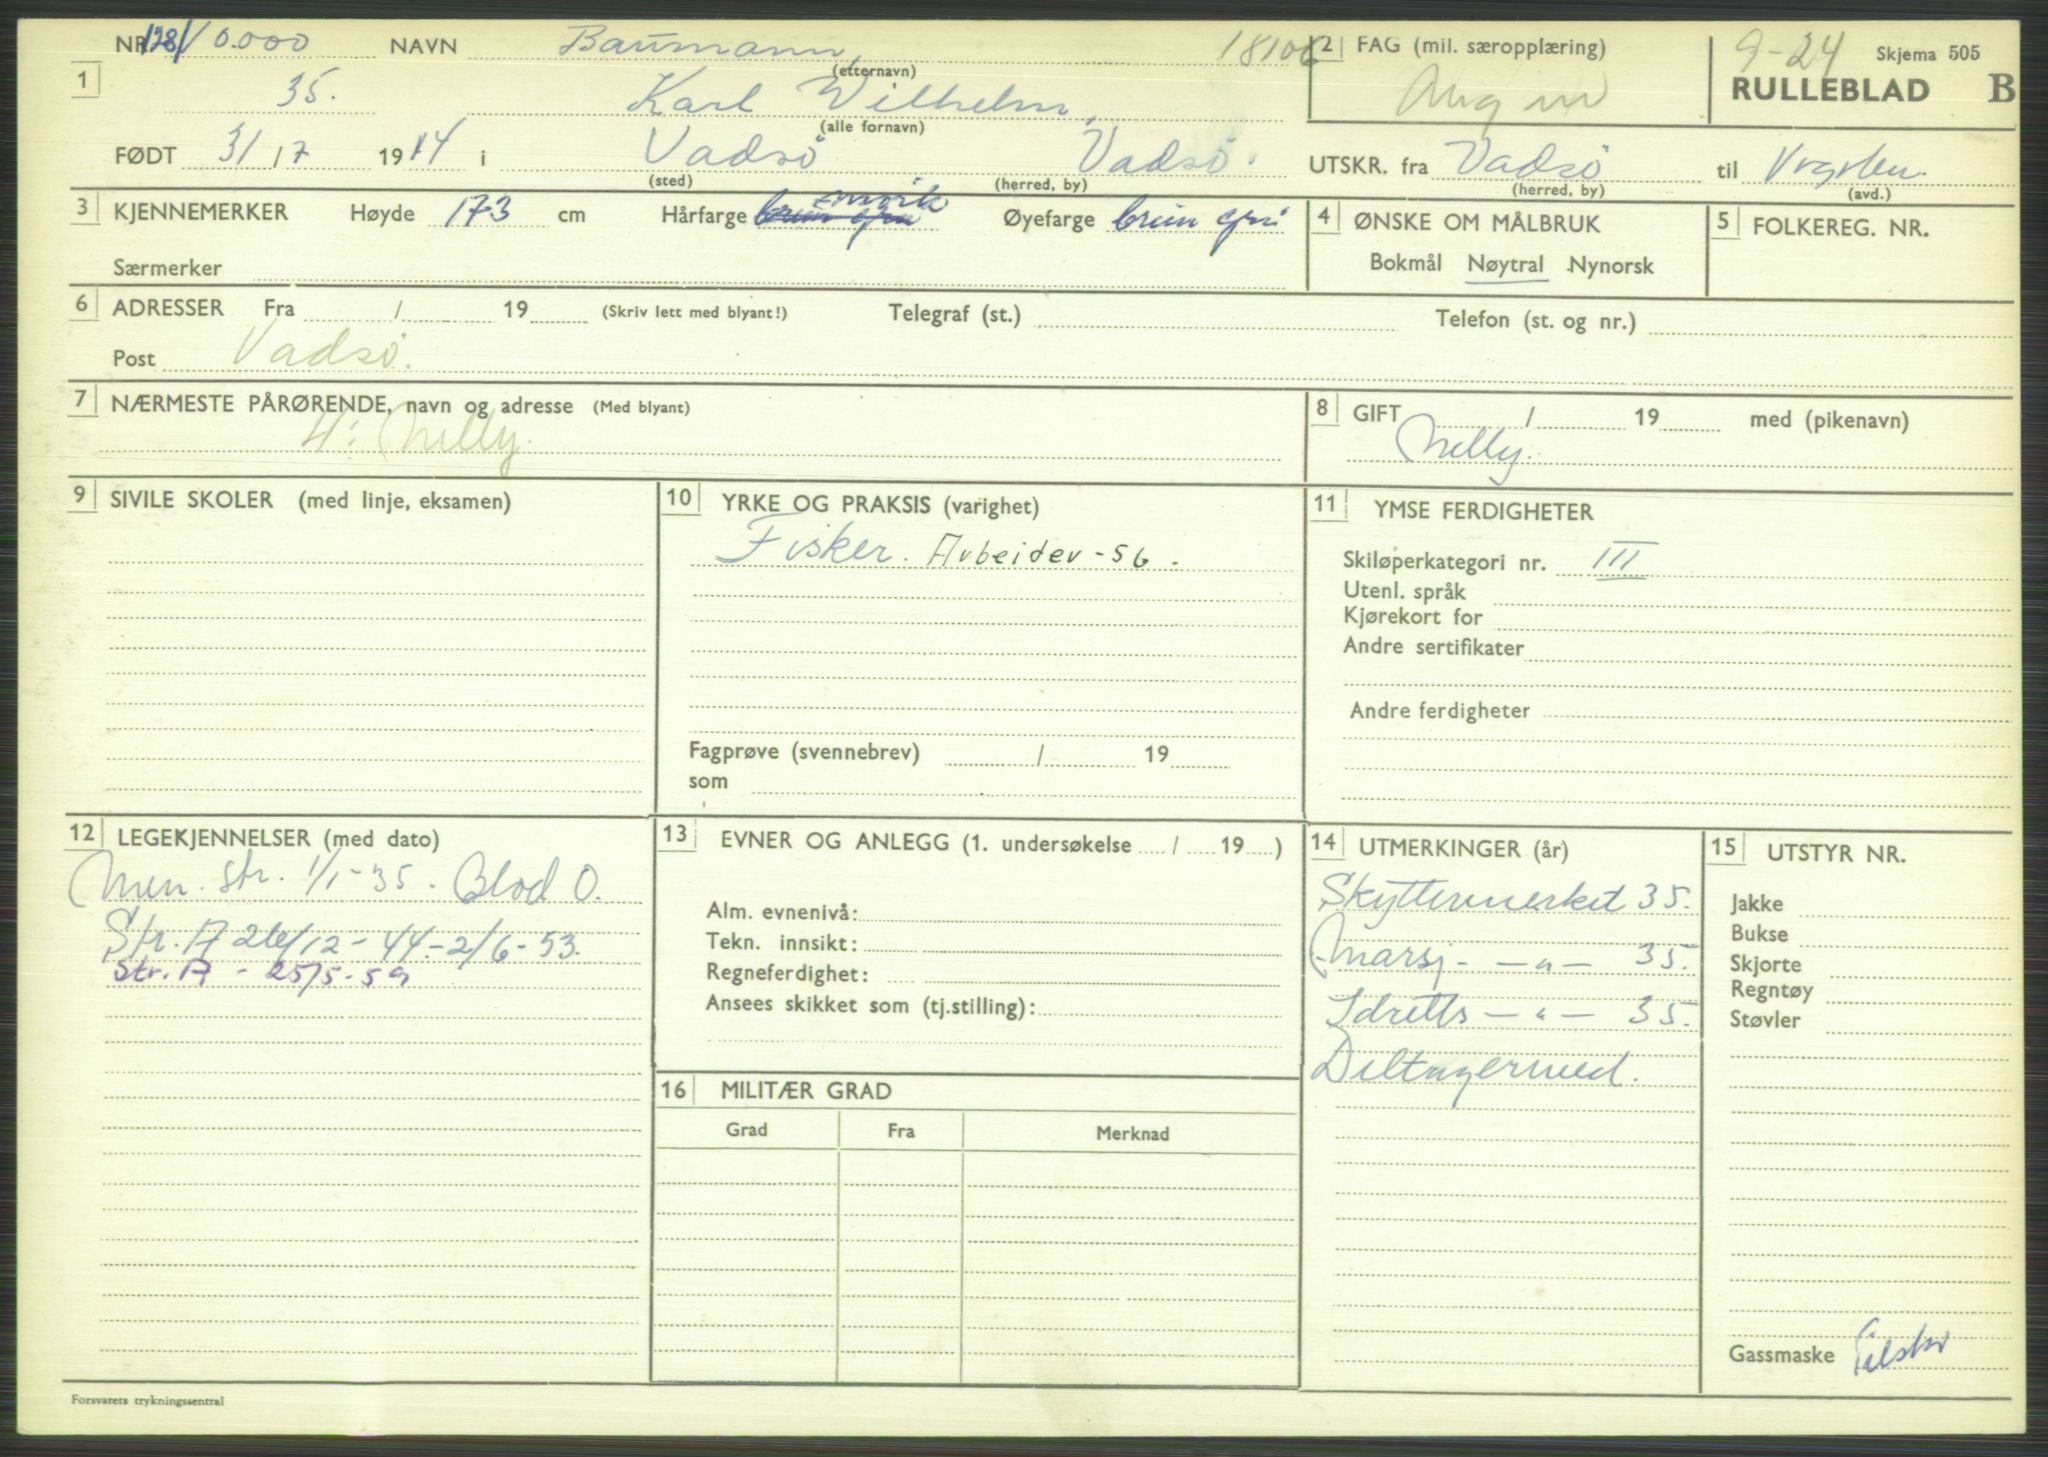 NR 128/0.000 NAVN Baumann, 18106
(etternavn)
1 35. Karl Wilhelm.
(alle fornavn)
FØDT 31/7 1914 i Vadsö Vadsö.
(sted) (herred, by)
2 FAG (mil. særopplæring)
9-24 Skjema 505
RULLEBLAD B
UTSKR. fra Vadsö til
(herred, by) (avd.)
3 KJENNEMERKER Høyde 173 cm Hårfarge mørk Øyefarge brun
Særmerker
4 ØNSKE OM MÅLBRUK
Bokmål Nøytral Nynorsk
5 FOLKEREG. NR.
6 ADRESSER Fra / 19 (Skriv lett med blyant!) Telegraf (st.) Telefon (st. og nr.)
Post Vadsö.
7 NÆRMESTE PÅRØRENDE, navn og adresse (Med blyant)
H: Nelly.
8 GIFT / 19 med (pikenavn)
Nelly.
9 SIVILE SKOLER (med linje, eksamen)
10 YRKE OG PRAKSIS (varighet)
Fisker. Arbeider -56.
Fagprøve (svennebrev) / 19
som
11 YMSE FERDIGHETER
Skiløperkategori nr. III
Utenl. språk
Kjørekort for
Andre sertifikater
Andre ferdigheter
12 LEGEKJENNELSER (med dato)
Min. str. 1/1-35. Blod O.
Str. A 26/12-44-2/6-53.
Str. A - 25/5-59
13 EVNER OG ANLEGG (1. undersøkelse / 19 )
Alm. evnenivå:
Tekn. innsikt:
Regneferdighet:
Ansees skikket som (tj.stilling):
14 UTMERKINGER (år)
Skyttermerket 35.
Marsj- —"— 35.
Idretts —"— 35.
Deltagermed.
15 UTSTYR NR.
Jakke
Bukse
Skjorte
Regntøy
Støvler
Gassmaske
16 MILITÆR GRAD
Grad Fra Merknad
Forsvarets trykningssentral